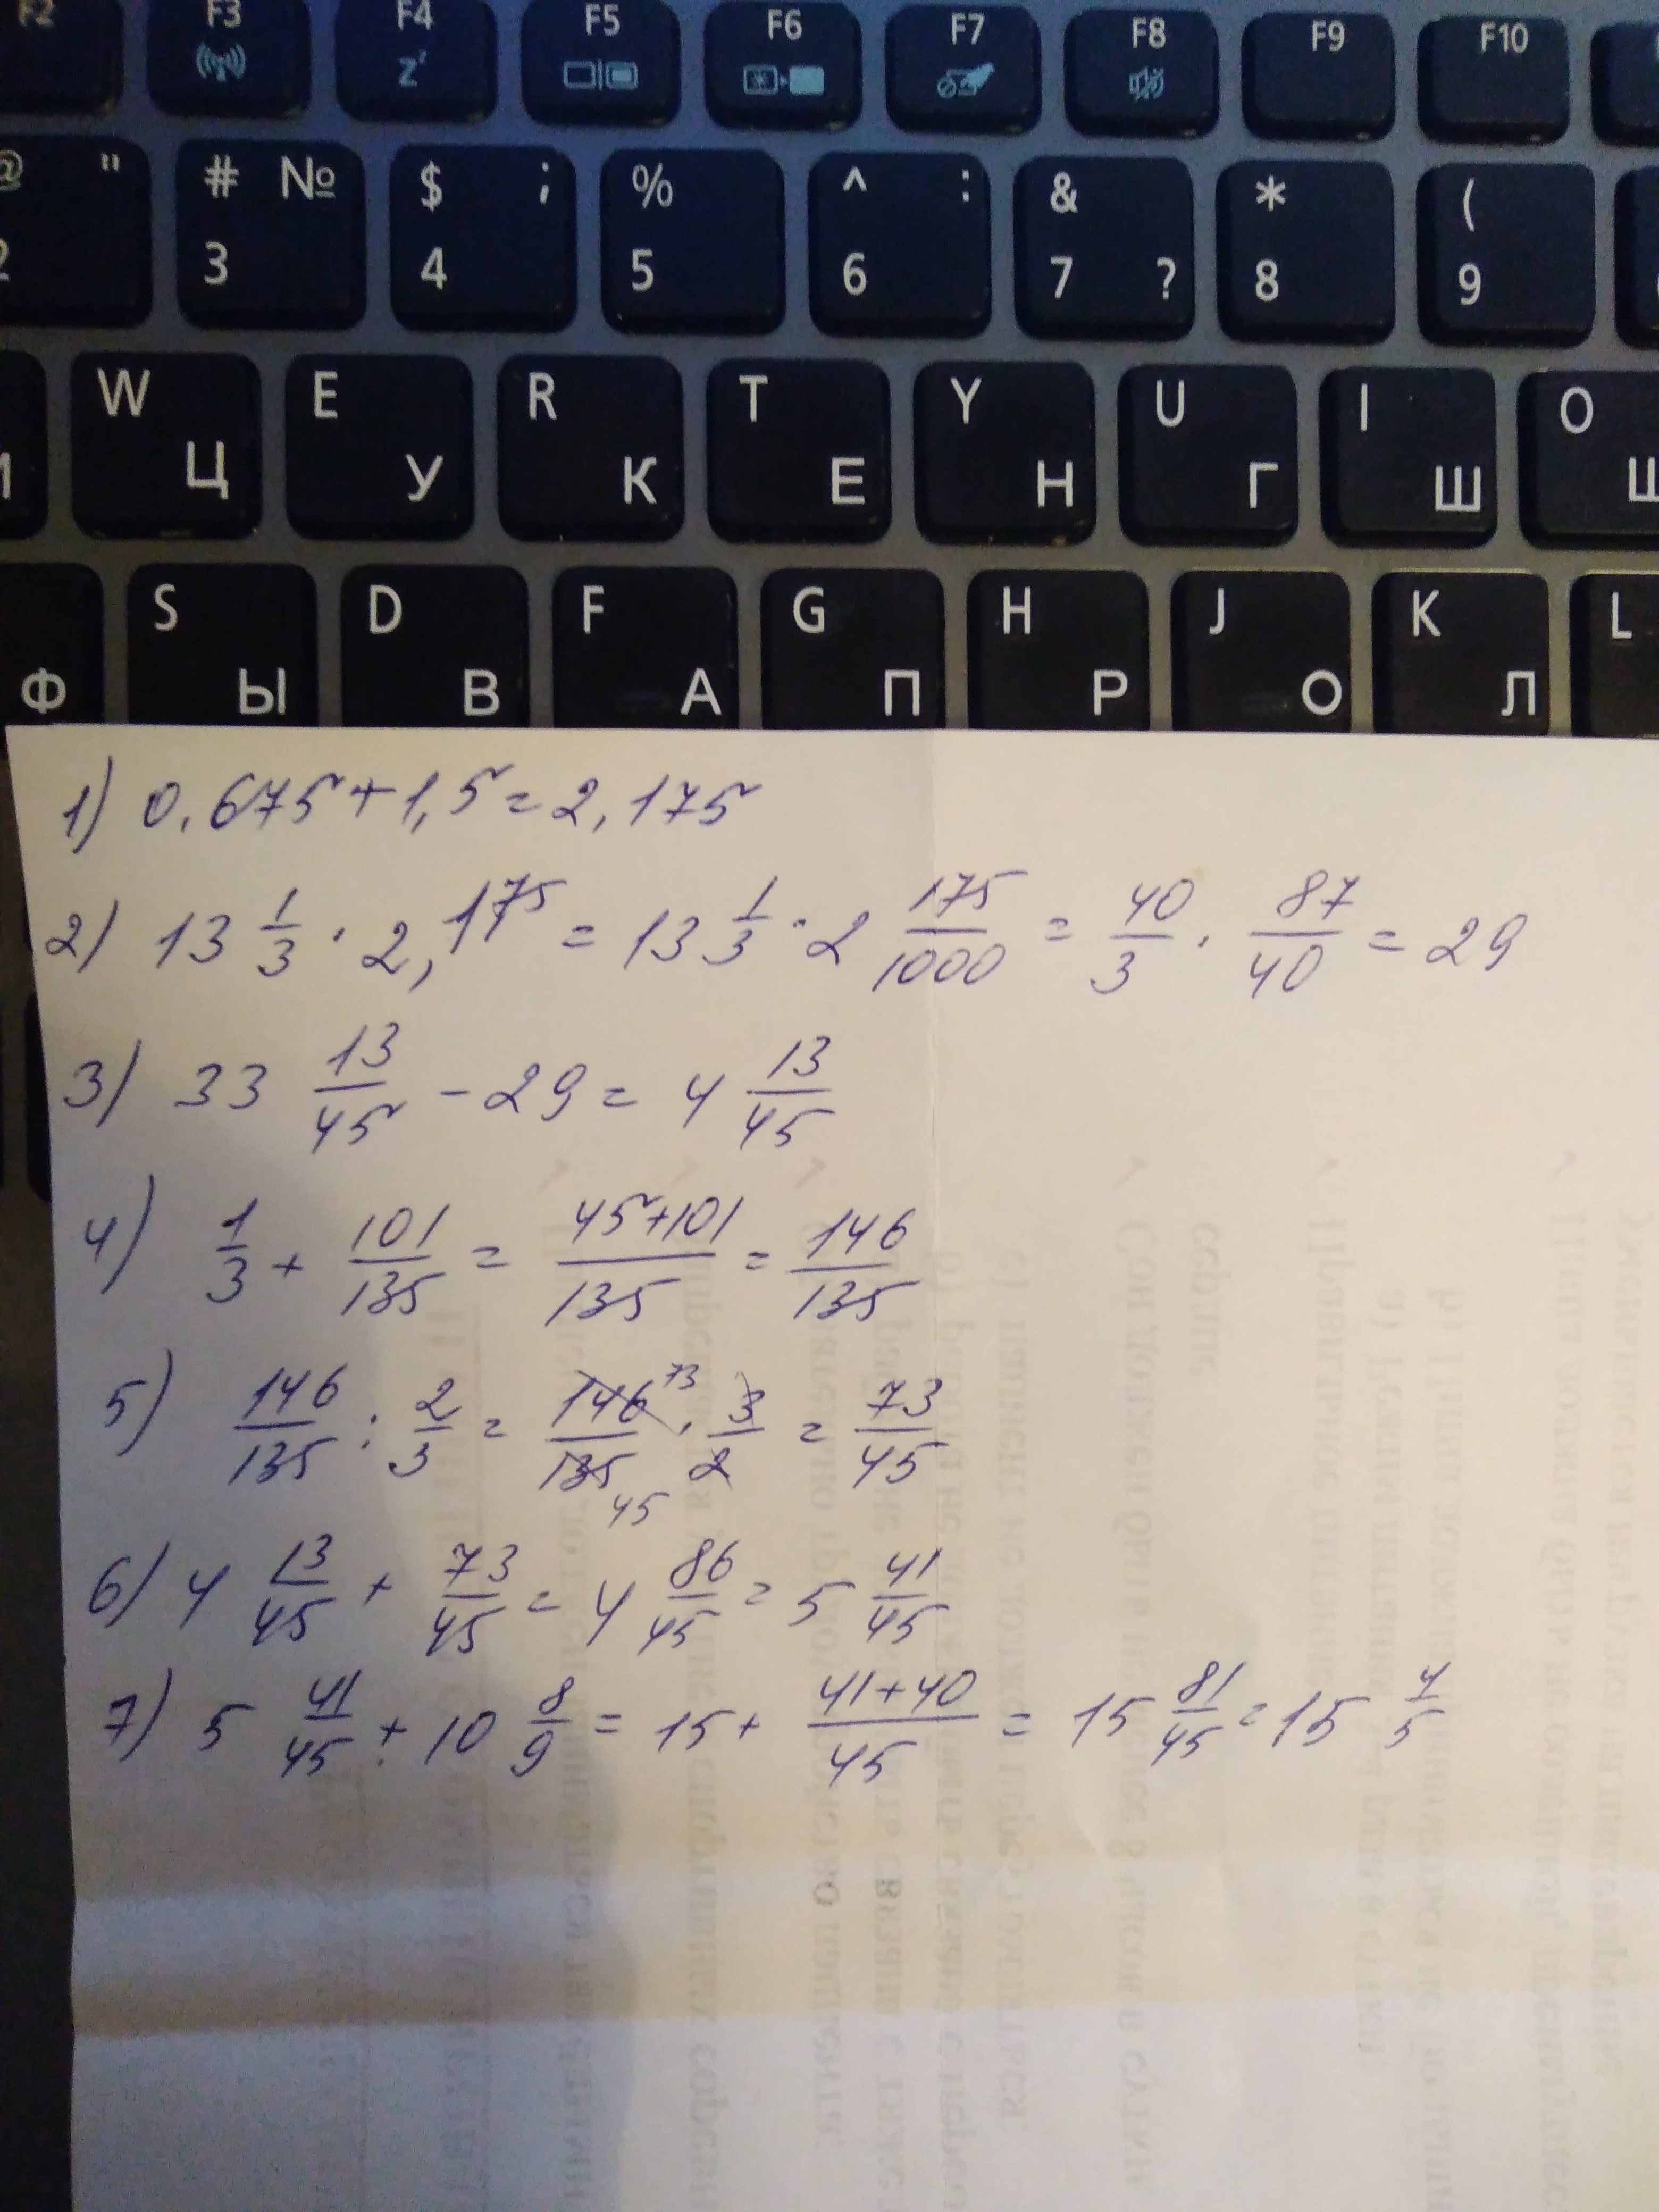 F2 F3 F4 F5 F6 F7 F8 F9 F10
@ " # № $ ; % ^ : & * (
2 3 4 5 6 7 ? 8 9
W E R T Y U I O
Ц У К Е Н Г Ш
S D F G H J K L
Ф Ы В А П Р О Л
1) 0,675 + 1,5 = 2,175
2) 13 1/3 · 2,175 = 13 1/3 · 2 175/1000 = 40/3 · 87/40 = 29
3) 33 13/45 - 29 = 4 13/45
4) 1/3 + 101/135 = 45+101/135 = 146/135
5) 146/135 : 2/3 = 146 73/135 45 · 3/2 = 73/45
6) 4 13/45 + 73/45 = 4 86/45 = 5 41/45
7) 5 41/45 + 10 8/9 = 15 + 41+40/45 = 15 81/45 = 15 4/5